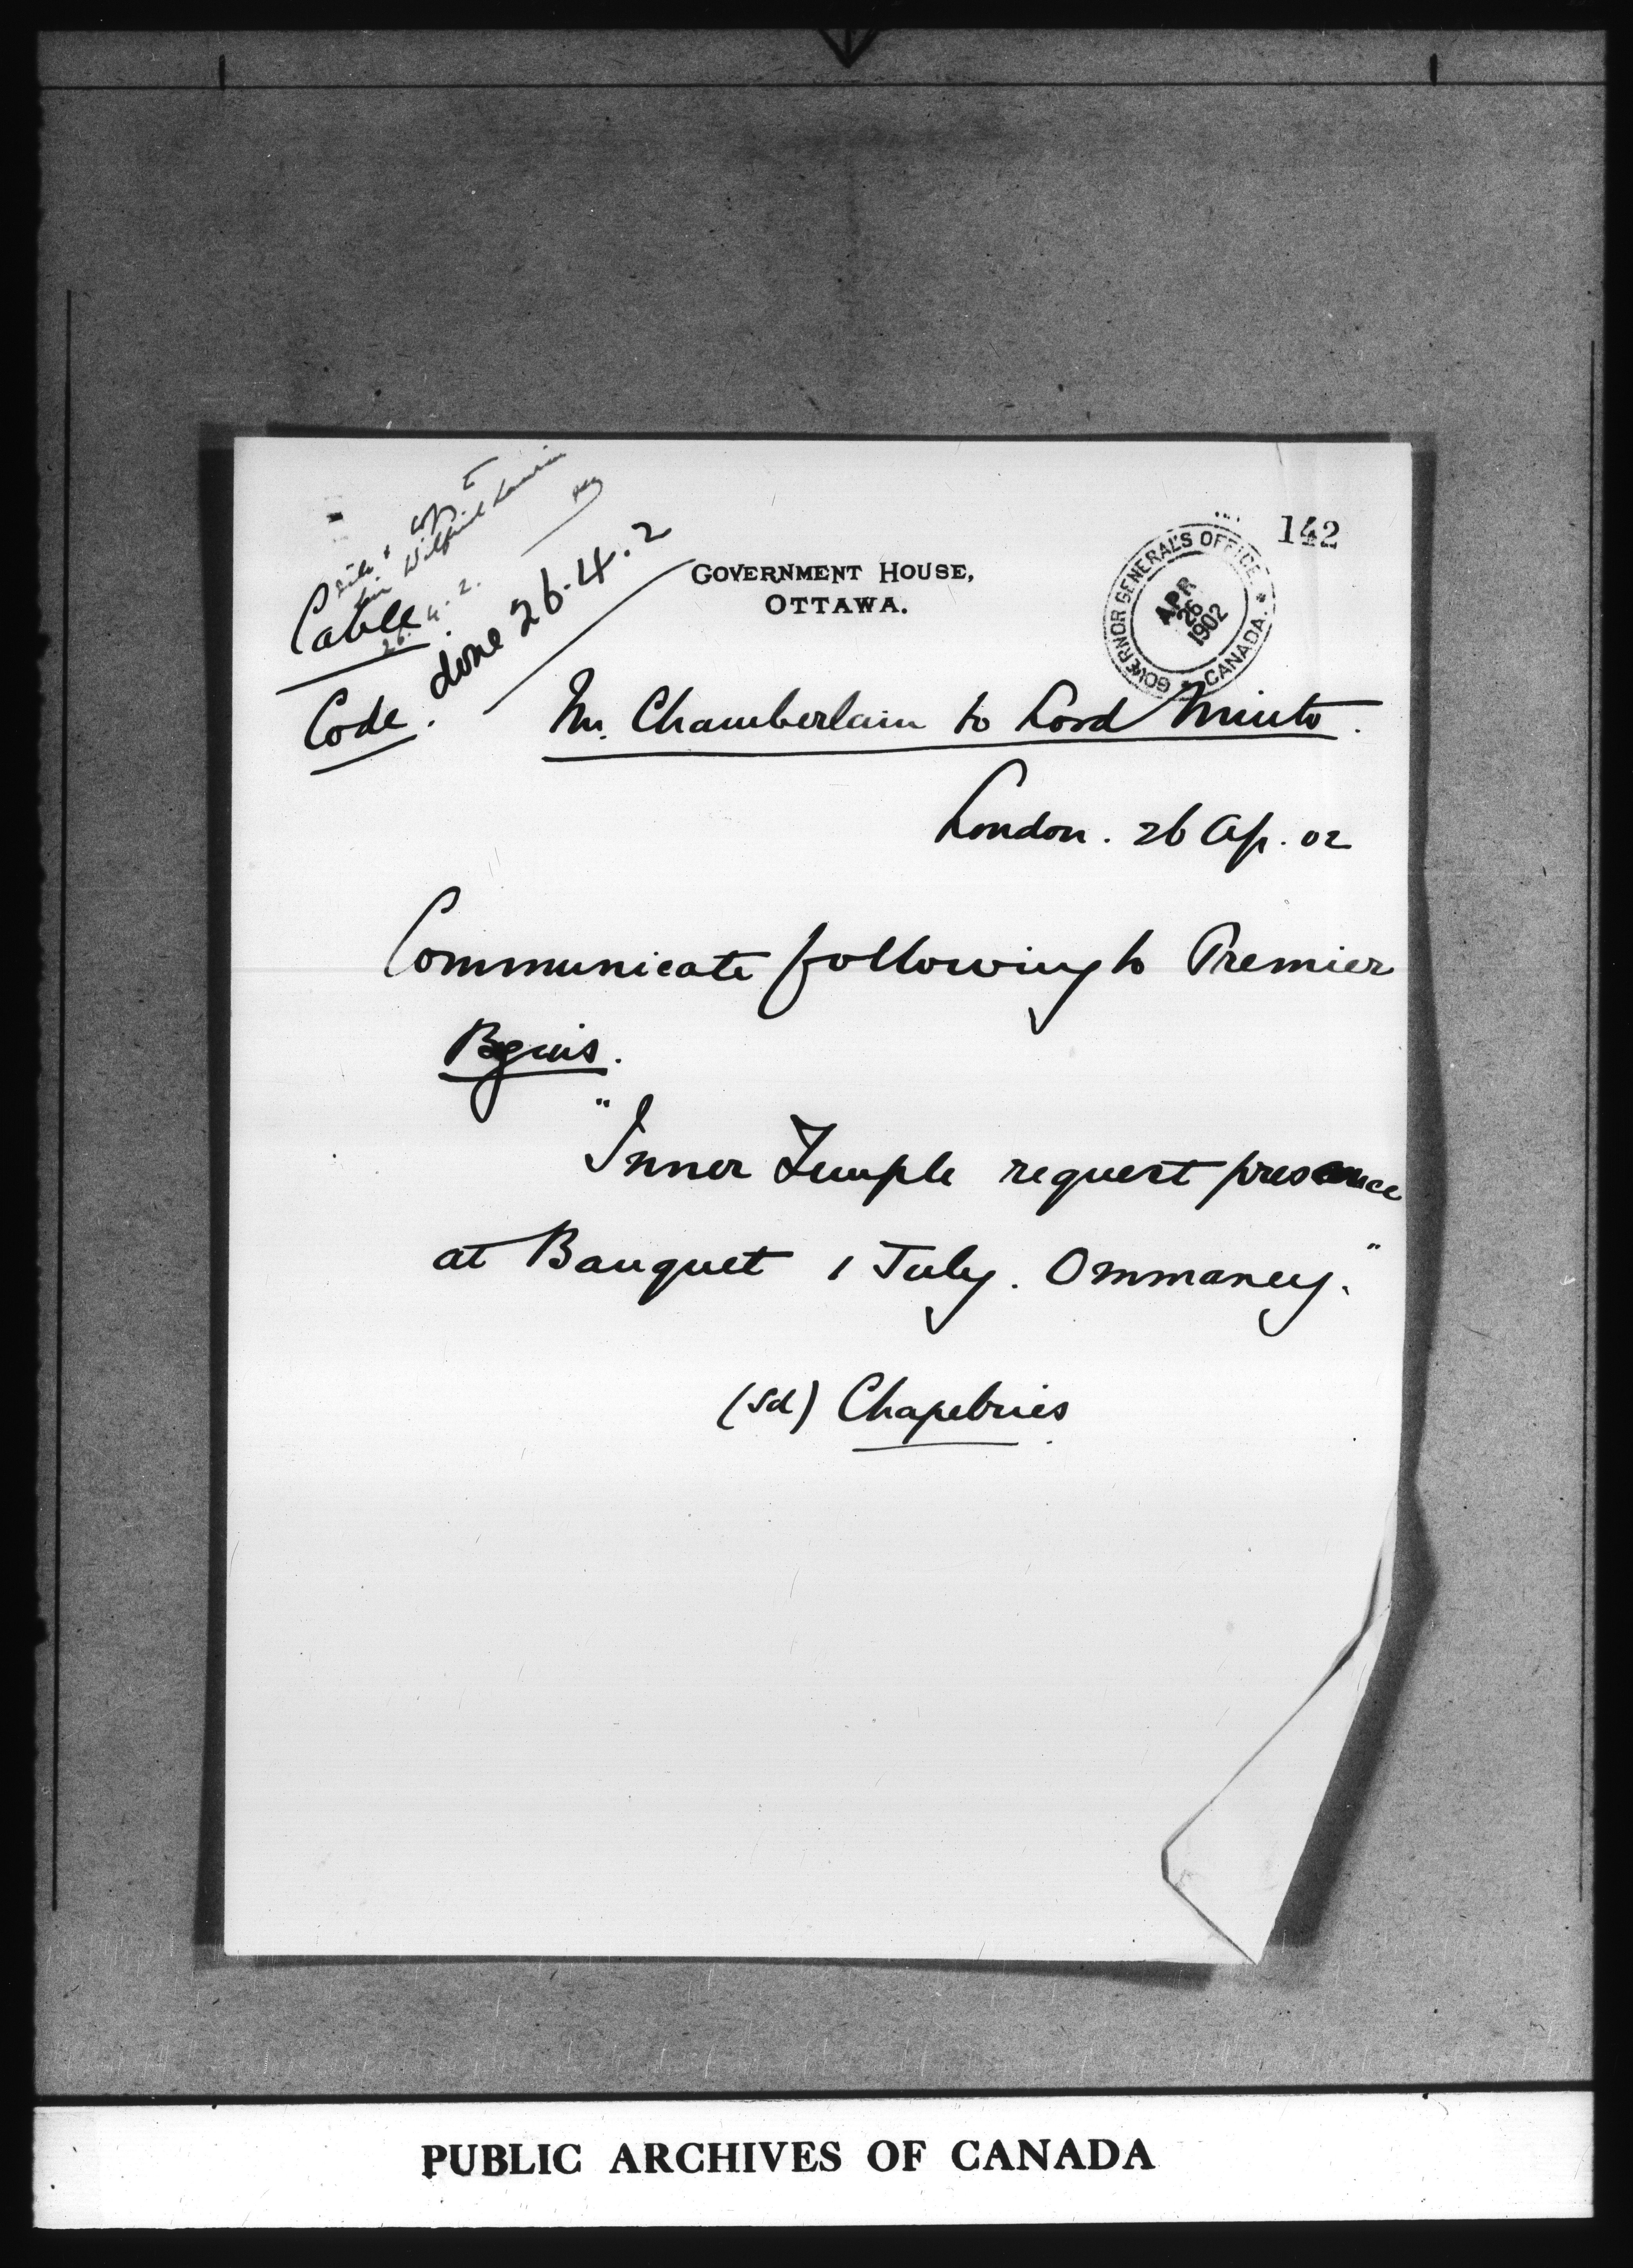 142
copy to
Sir Wilfrid Laurier
26.4.2.
Cable
done 26.4.2
Code.
GOVERNMENT HOUSE,
OTTAWA.
GOVERNOR GENERAL'S OFFICE
APR
26
1902
CANADA.
Mr. Chamberlain to Lord Minto.
London. 26 Ap. 02
Communicate following to Premier
Begins.
"Inner Temple request presence
at Banquet 1 July. Ommaney."
(Sd) Chapebries
PUBLIC ARCHIVES OF CANADA